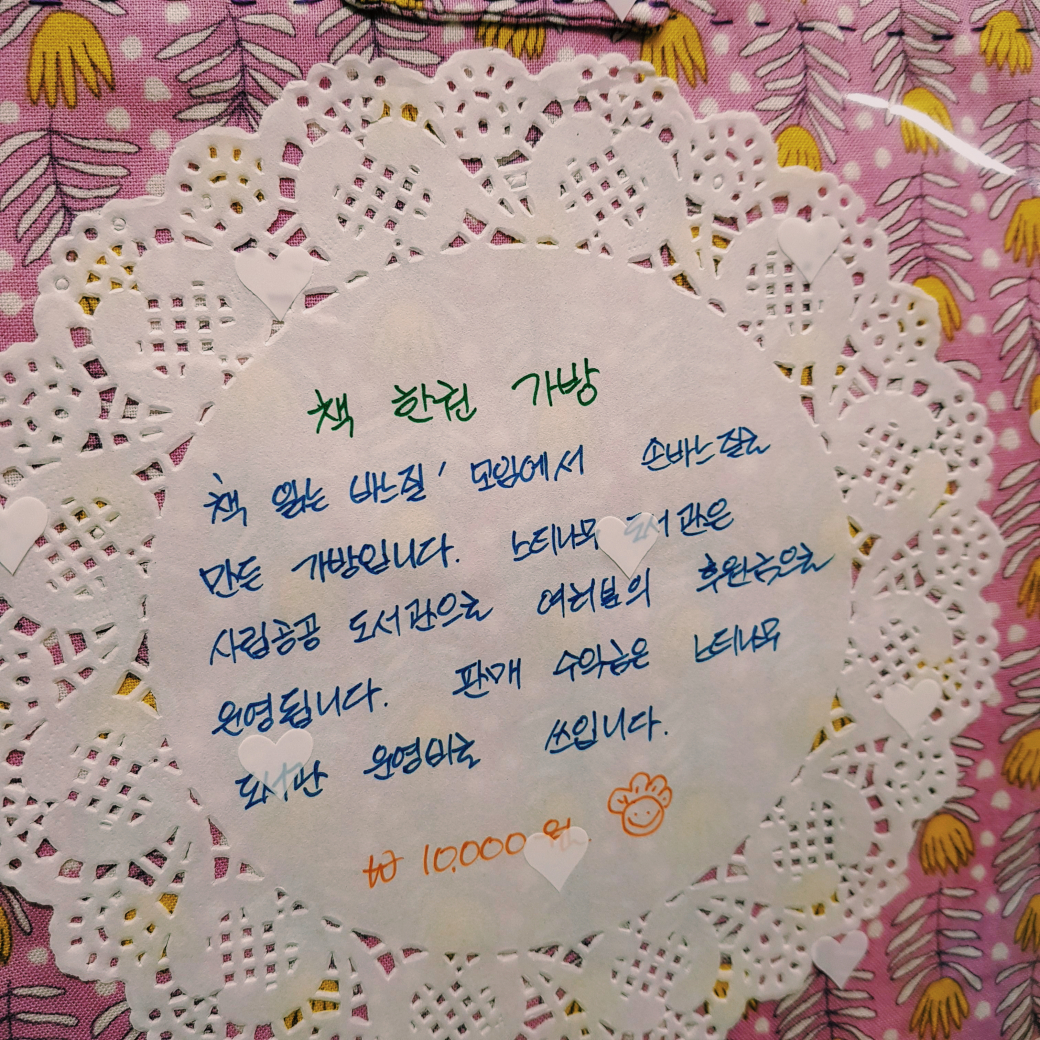 책 한권 가방
책 읽는 바느질' 모임에서 손바느질로
만든 가방입니다. 느티나무 도서관은
사립공공 도서관으로 여러분의 후원금으로
운영됩니다. 판매 수익금은 느티나무
도서관 운영비로 쓰입니다.
₩ 10,000 원